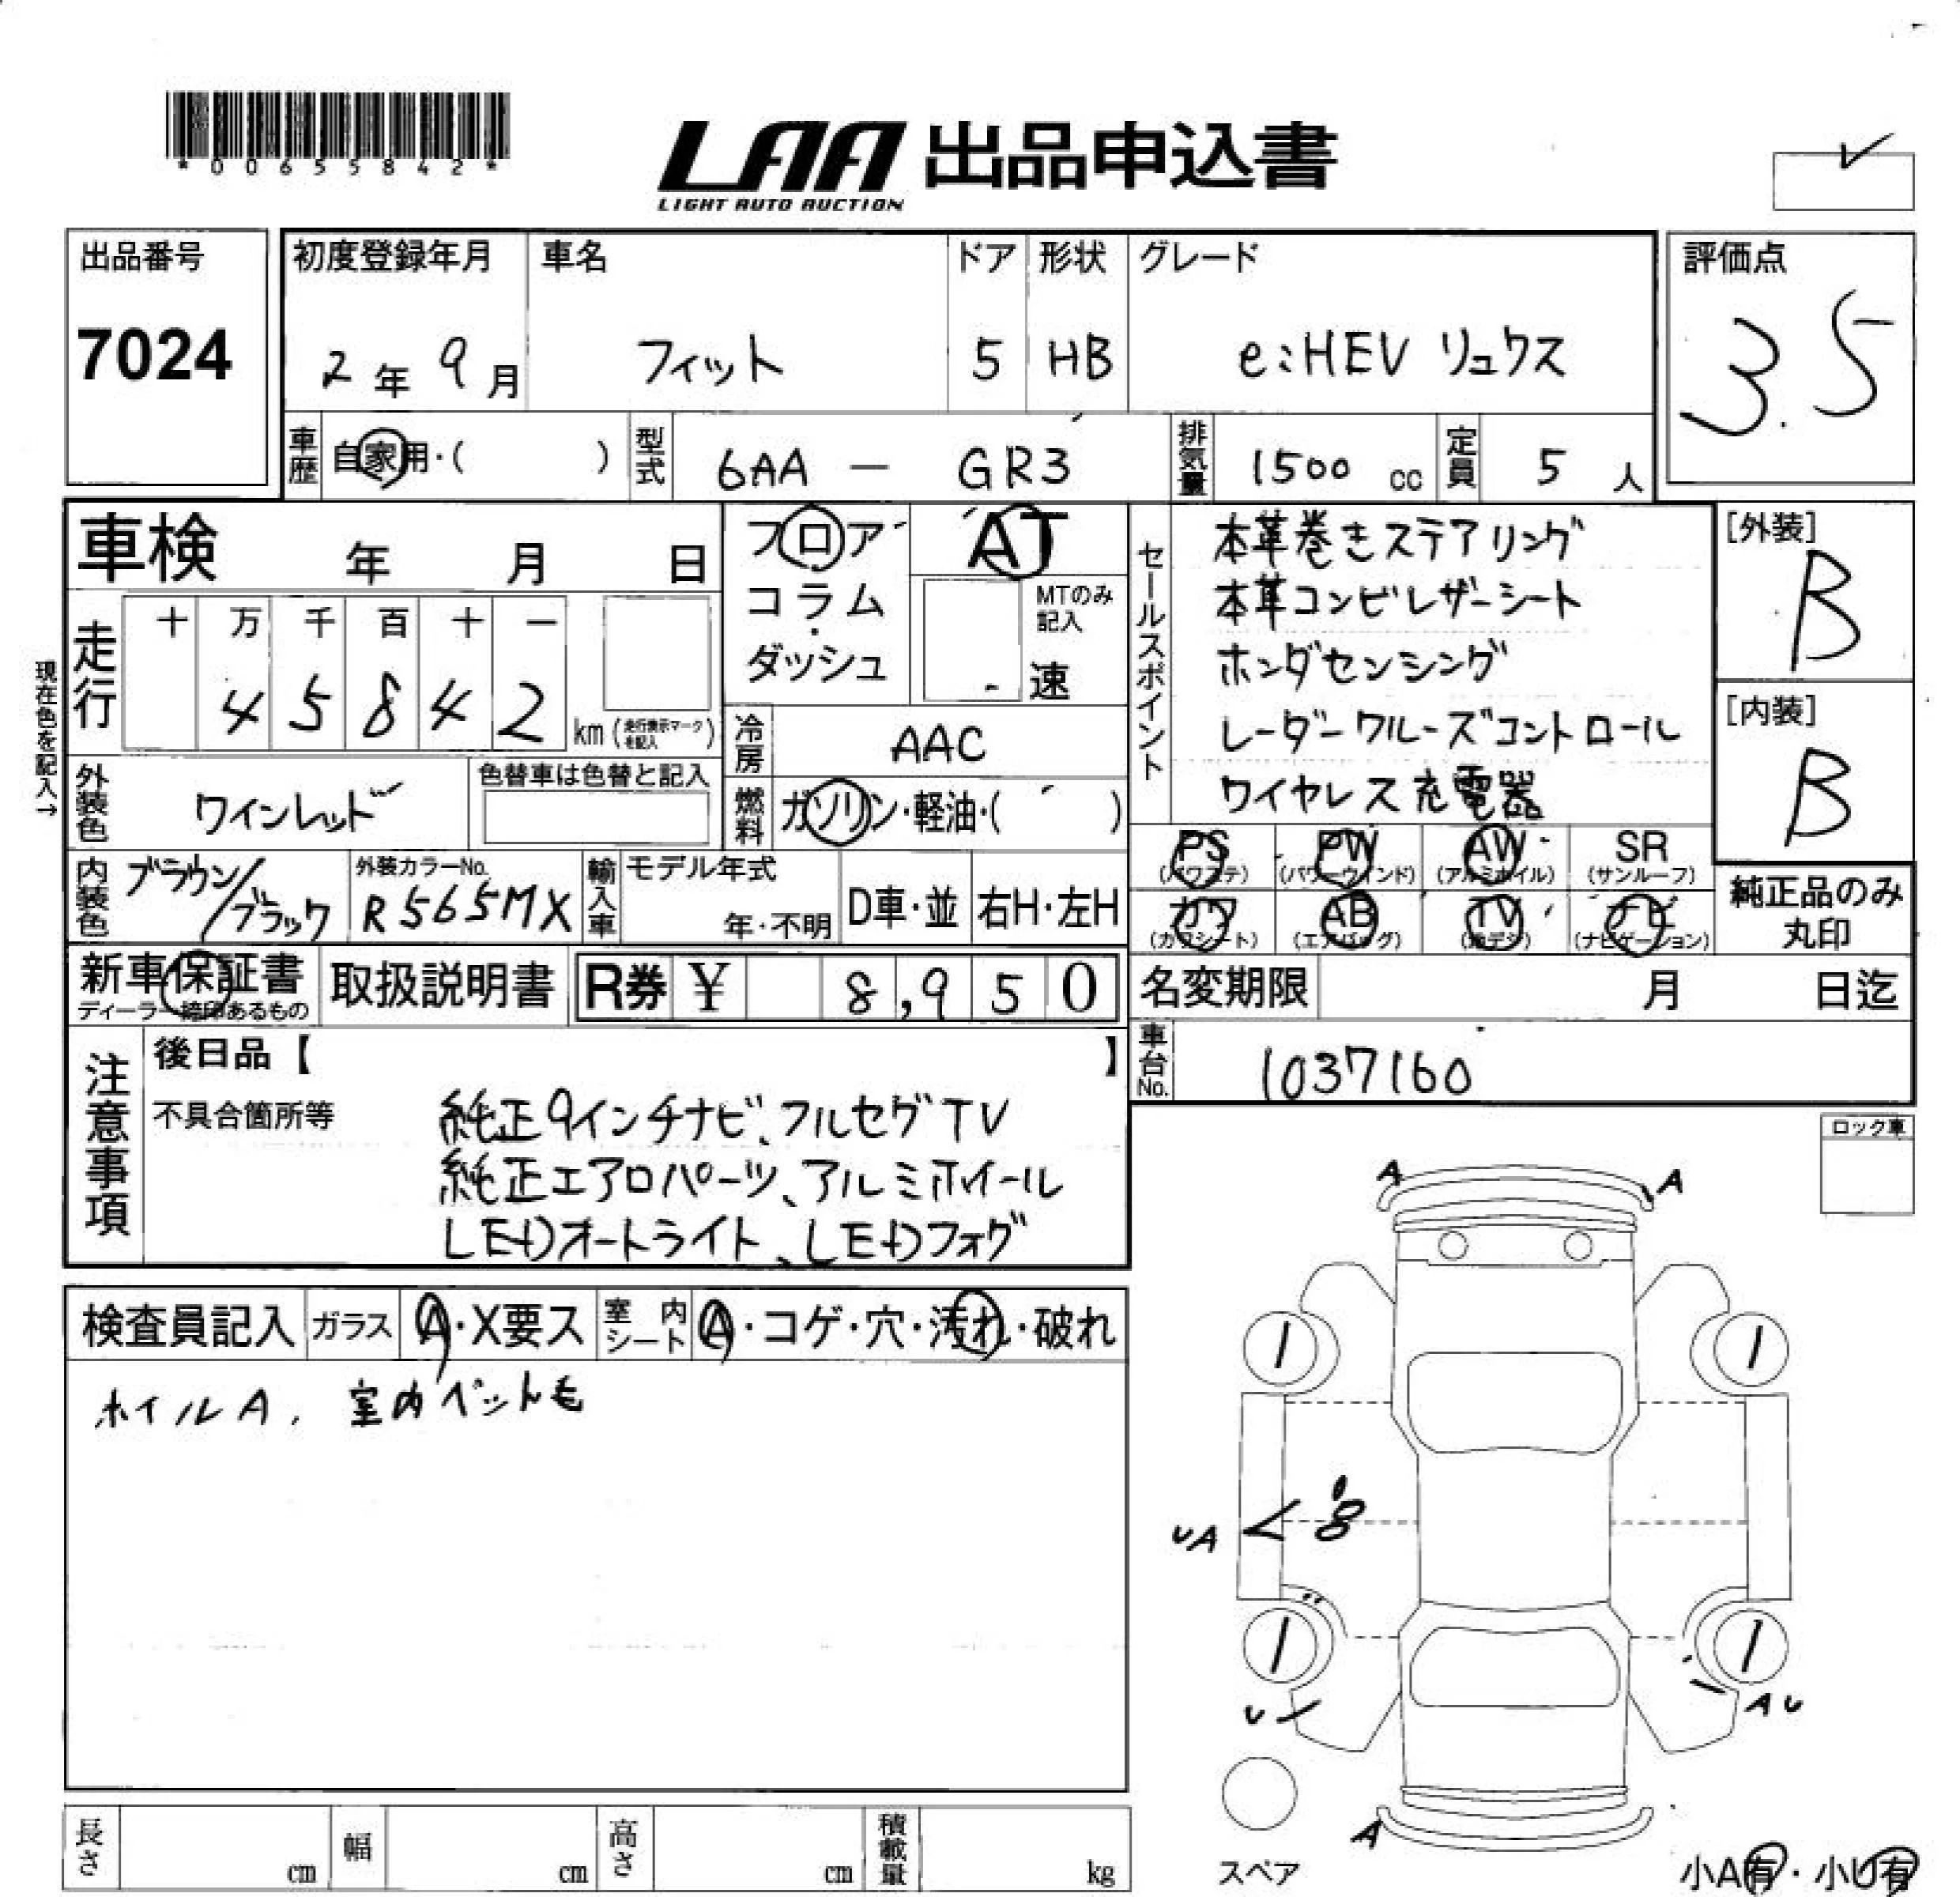 *00655842*
LAA 出品申込書
LIGHT AUTO AUCTION
出品番号
7024
初度登録年月
2年 9月
車名
フィット
ドア
5
形状
HB
グレード
e:HEV リュクス
評価点
3.5
車歴 自家用・( )
型式 6AA - GR3
排気量 1500 cc
定員 5 人
車検 年 月 日
フロア
コラム
・
ダッシュ
AT
MTのみ記入
速
走行
十 万 千 百 十 一
4 5 8 4 2
km (走行表示マークを記入)
現在色を記入→
冷房 AAC
燃料 ガソリン・軽油・( )
外装色 ワインレッド
色替車は色替と記入
内装色 ブラウン/ブラック
外装カラーNo.
R565MX
輸入車
モデル年式
年・不明
D車・並
右H・左H
セールスポイント
本革巻きステアリング
本革コンビレザーシート
ホンダセンシング
レーダークルーズコントロール
ワイヤレス充電器
[外装]
B
[内装]
B
PS (パワステ)
PW (パワーウインド)
AW (アルミホイル)
SR (サンルーフ)
カワ (カワシート)
AB (エアバッグ)
TV (地デジ)
ナビ (ナビゲーション)
純正品のみ
丸印
新車保証書
ディーラー捺印あるもの
取扱説明書
R券 ¥ 8,950
名変期限 月 日迄
車台No. 1037160
注意事項
後日品【 】
不具合箇所等
純正9インチナビ、フルセグTV
純正エアロパーツ、アルミホイール
LEDオートライト、LEDフォグ
ロック車
検査員記入
ガラス A・X要ス
室内シート A・コゲ・穴・汚れ・破れ
ホイルA, 室内ペット毛
A
A
UA
U
AU
A
スペア
小A有・小U有
長さ cm
幅 cm
高さ cm
積載量 kg